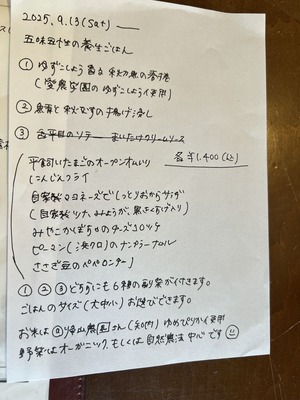 2025.9.13 (Sat)
五味五性の養生ごはん
① ゆずこしょう 秋刀魚の
(農園のゆずこしょう使用)
② 魚醤と秋なすの揚げ浸し
③ 舌平目のソテー まいたけクリームソース
各¥1,400(込)
平飼いたまごのオープンオムレツ
にんじんフライ
自家製マヨネーズでしっとりおからサラダ
(自家製ツナ、みょうが、黒きくらげ入り)
みやこかぼちゃのチーズコロッケ
ピーマンのナンプラーナムル
ささぎ豆のペペロンチーノ
①②③どちらにも6種の副菜が付きます。
ごはんのサイズ(大中小)お選びできます。
お米は 農園さん ゆめぴりか使用
野菜はオーガニック、もしくは自然農法 中心です